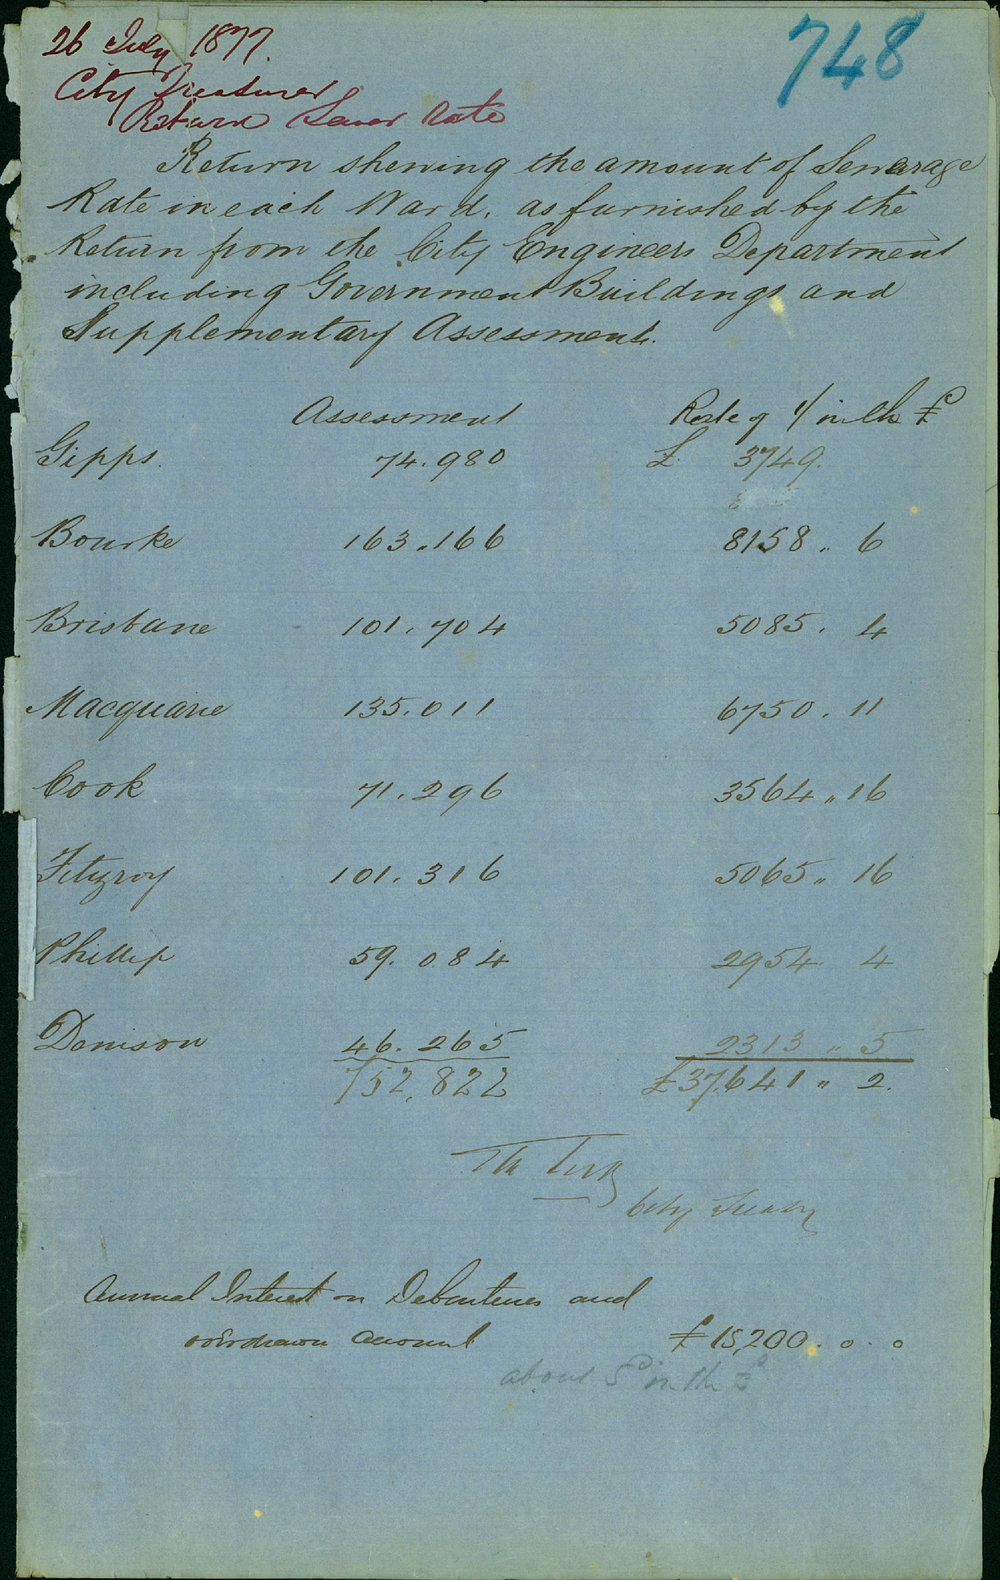 748
26 July 1877.
City Treasurer
Return Sewer Rate
Return shewing the amount of Sewerage
Rate in each Ward, as furnished by the
Return from the City Engineers Department
including Government Buildings and
Supplementary Assessment.
Assessment Rate of 1/ in the £
Gipps. 74.980 £. 3749.
Bourke 163.166 8158 " 6
Brisbane 101.704 5085. 4
Macquarie 135.011 6750. 11
Cook 71.296 3564 " 16
Fitzroy 101.316 5065 " 16
Phillip 59.084 2954 4
Denison 46.265 2313 " 5
752,822 £37,641 " 2.
City Treasr
Annual Interest on Debentures and
overdrawn account £15,200. 0. 0
about 5d in the £